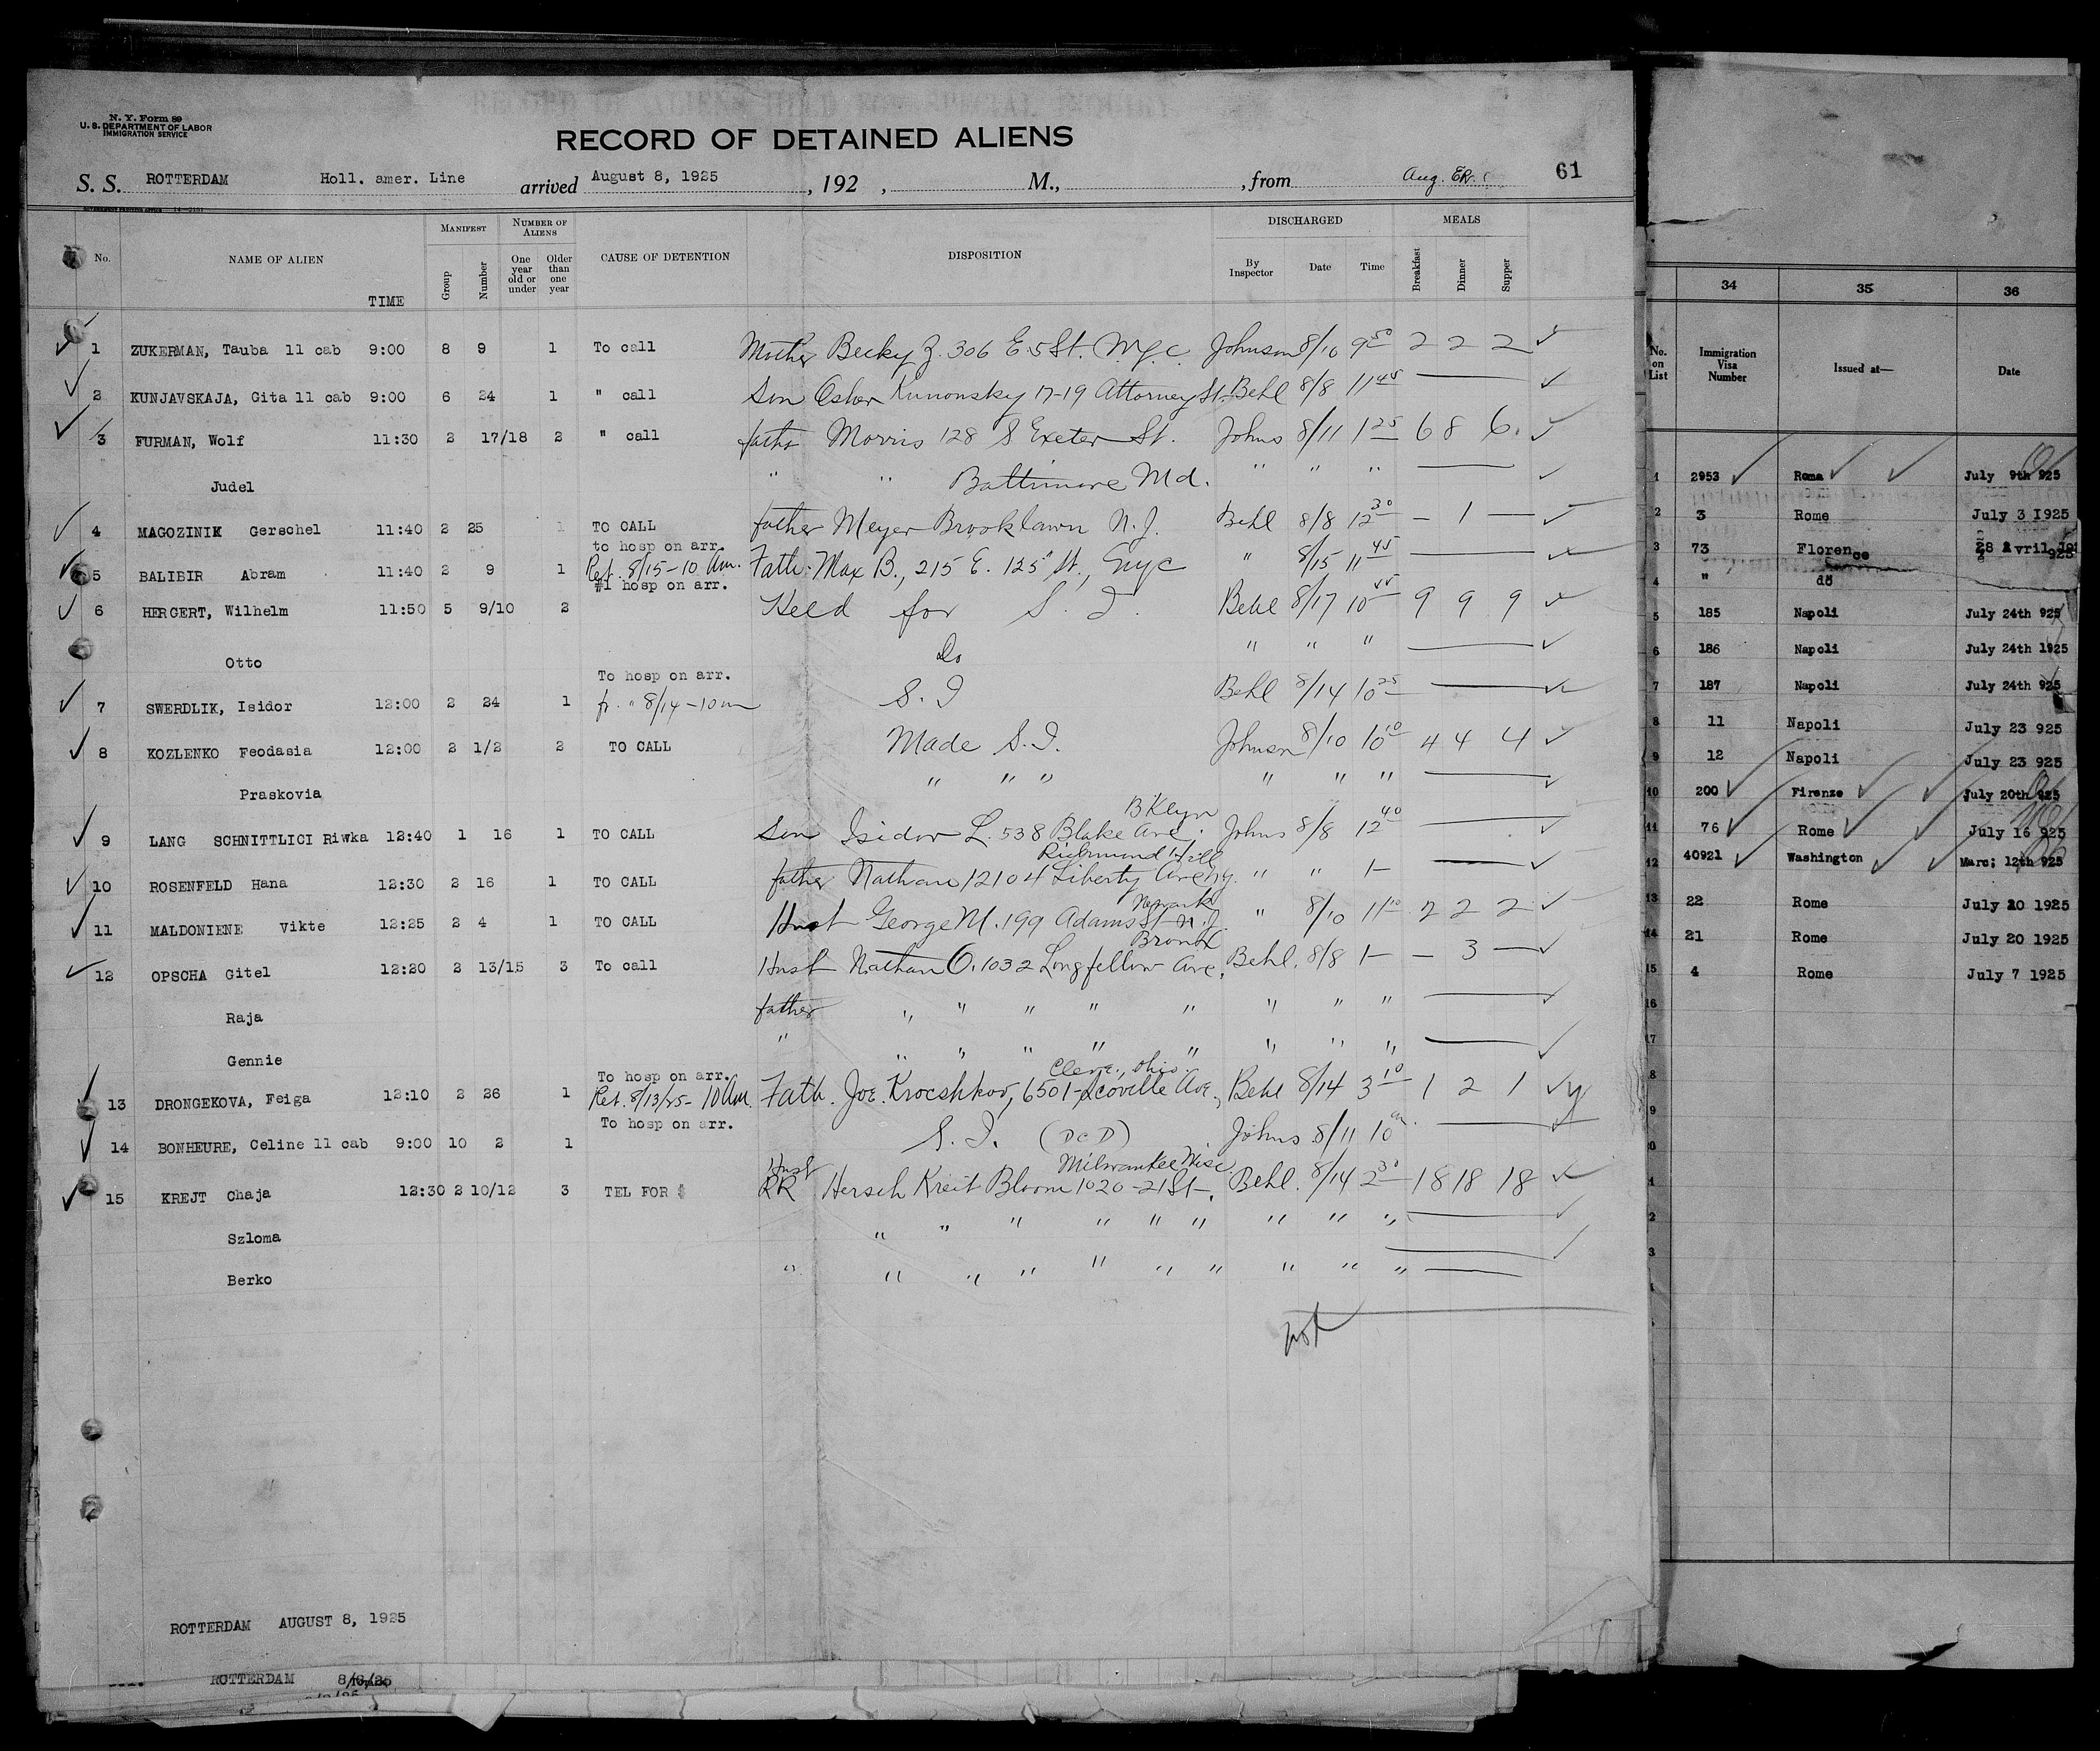 N. Y. Form 89
U. S. DEPARTMENT OF LABOR
IMMIGRATION SERVICE
RECORD OF DETAINED ALIENS
61
S. S. ROTTERDAM Holl. amer. Line arrived August 8, 1925, 192 , M., , from Aug.
No. NAME OF ALIEN TIME MANIFEST Group Number NUMBER OF ALIENS One year old or under Older than one year CAUSE OF DETENTION DISPOSITION DISCHARGED By Inspector Date Time MEALS Breakfast Dinner Supper
1 ZUKERMAN, Tauba 11 cab 9:00 8 9 1 To call Mother Becky Z. 306 E. 5 St. N.Y.C. Johnson 8/10 9 50 2 2 2
2 KUNJAVSKAJA, Gita 11 cab 9:00 6 24 1 " call Son Osher Kunonsky 17-19 Attorney St. Behl 8/8 11 45
3 FURMAN, Wolf 11:30 2 17/18 2 " call father Morris 128 S Exeter St. Johns 8/11 1 25 6 8 6.
Judel " " Baltimore Md. " " "
4 MAGOZINIK Gerschel 11:40 2 25 1 TO CALL father Meyer Brooklawn N.J. Behl 8/8 12 30 — 1 —
to hosp on arr.
5 BALIBIR Abram 11:40 2 9 1 Ret. 8/15-10 am. Fath. Max B., 215 E. 125" St., Nyc " 8/15 11 45
#1 hosp on arr.
6 HERGERT, Wilhelm 11:50 5 9/10 2 Held for S. I. Behl 8/17 10 45 9 9 9
Otto Do " " "
To hosp on arr.
7 SWERDLIK, Isidor 12:00 2 24 1 fr. " 8/14-10 am S. I Behl 8/14 10 25
8 KOZLENKO Feodasia 12:00 2 1/2 2 TO CALL Made S.I. Johnson 8/10 10 10 4 4 4
Praskovia " " " " " "
B'klyn
9 LANG SCHNITTLICI Riwka 12:40 1 16 1 TO CALL Son Isidor L. 538 Blake Ave. Johns 8/8 12 40
Richmond Hill
10 ROSENFELD Hana 12:30 2 16 1 TO CALL father Nathan 12104 Liberty Ave NY. " " 1—
Newark
11 MALDONIENE Vikte 12:25 2 4 1 TO CALL Husb George M. 199 Adams St N.J. " 8/10 11 10 2 2 2
Bronx
12 OPSCHA Gitel 12:20 2 13/15 3 To call Husb Nathan O. 1032 Longfellow Ave. Behl. 8/8 1— — 3 —
Raja father " " " " " " " "
Gennie " " " " " " " " "
To hosp on arr. Cleve., Ohio.
13 DRONGEKOVA, Feiga 12:10 2 26 1 Ret. 8/13/25- 10 Am. Fath. Joe. Krocshkov, 6501-Scoville Ave., Behl 8/14 3 10 1 2 1
To hosp on arr.
14 BONHEURE, Celine 11 cab 9:00 10 2 1 S. I. (D C D) Johns 8/11 10
Husb Milwaukee Wisc.
15 KREJT Chaja 12:30 2 10/12 3 TEL FOR $ RR Hersch Kreit Bloom 1020-21 St. Behl. 8/14 2 30 18 18 18
Szloma " " " " " " " " "
Berko " " " " " " " " " "
ROTTERDAM AUGUST 8, 1925
ROTTERDAM
34 35 36
No. on List Immigration Visa Number Issued at— Date
1 2953 Roma July 9th 925
2 3 Rome July 3 1925
3 73 Florence 28 Avril
4 " do
5 185 Napoli July 24th 925
6 186 Napoli July 24th 1925
7 187 Napoli July 24th 925
8 11 Napoli July 23 925
9 12 Napoli July 23 925
10 200 Firenze July 20th 925
11 76 Rome July 16 925
12 40921 Washington Marc; 12th 925
13 22 Rome July 20 1925
14 21 Rome July 20 1925
15 4 Rome July 7 1925
16
7
8
9
0
1
2
3